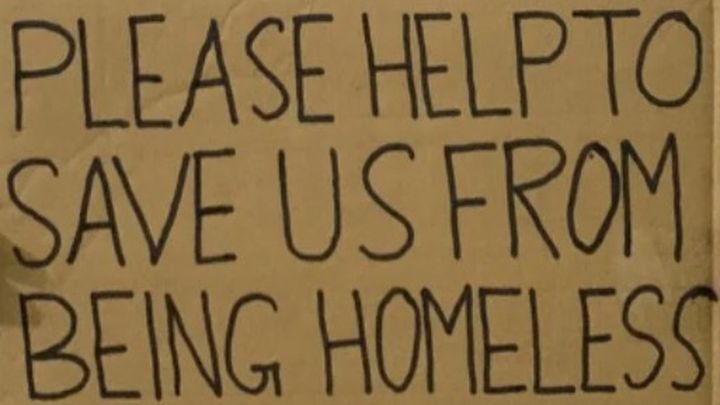 PLEASE HELP TO
SAVE US FROM
BEING HOMELESS